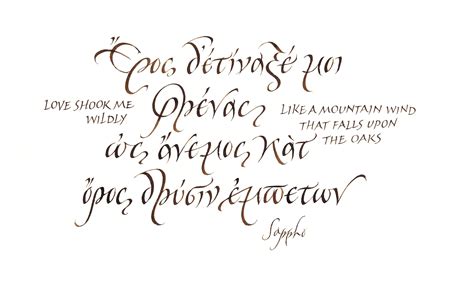 Ἔρος δ'ἐτίναξέ μοι
φρένας
LOVE SHOOK ME
WILDLY
LIKE A MOUNTAIN WIND
THAT FALLS UPON
THE OAKS
ὠς ἄνεμος κὰτ
ὄρος δρύσιν ἐμπετων
Sappho